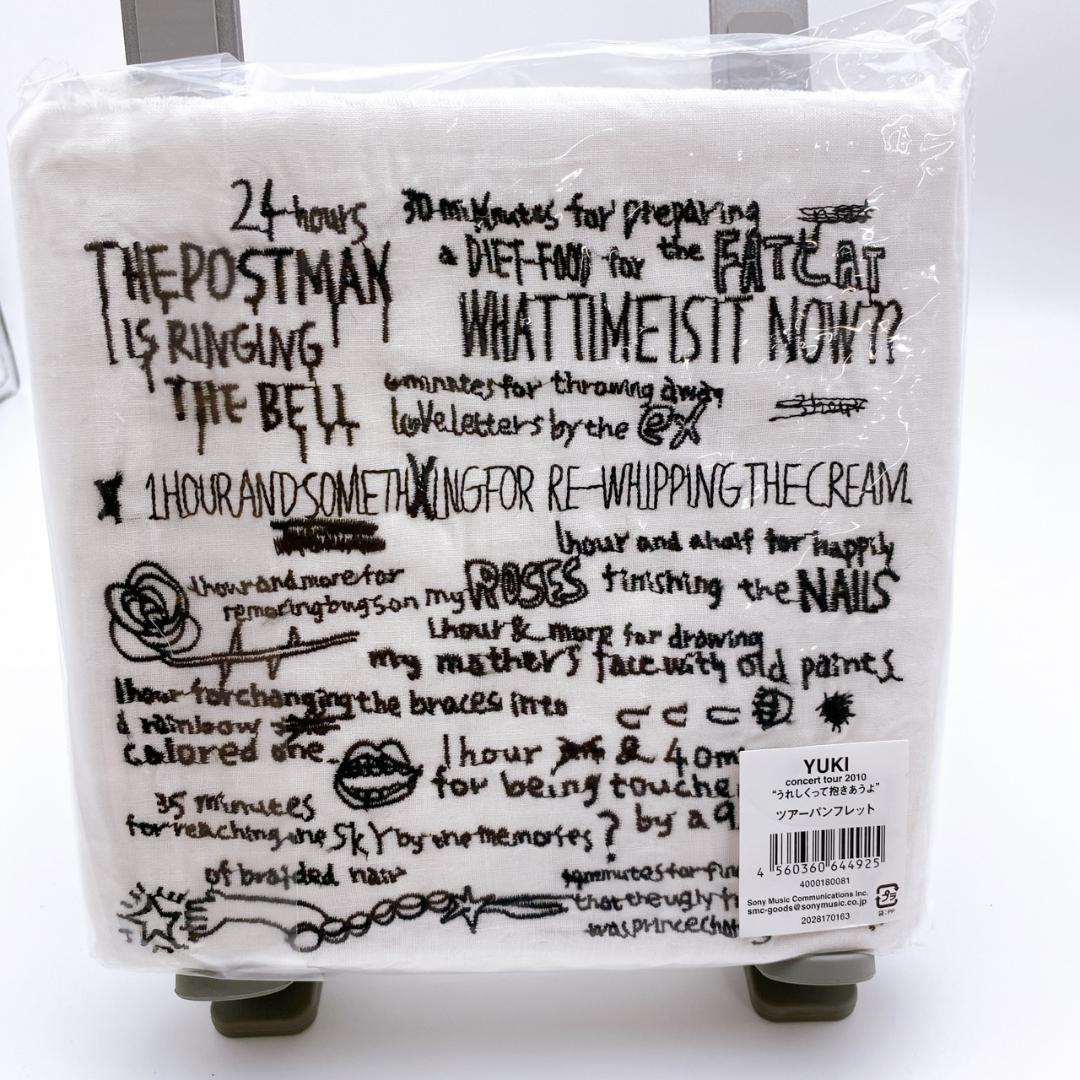 24 hours
THE POSTMAN
IS RINGING
THE BELL
30 minutes for preparing
a DIET-FOOD for the FAT CAT
WHAT TIME IS IT NOW??
6 minutes for throwing away
love letters by the ex
1 HOUR AND SOMETHXING FOR RE-WHIPPING THE CREAM.
1 hour and a half for happily
finishing the NAILS
1 hour and more for
removing bugs on my ROSES
1 hour & more for drawing
my mother's face with old paints
1 hour for changing the braces into
a rainbow
colored one.
1 hour & 40 m
for being touche
by a
35 minutes
for reaching the SKY by the memories?
of braided hair
minutes for fin
that the ugly
was prince cha
YUKI
concert tour 2010
"うれしくって抱きあうよ"
ツアーパンフレット
4 560360 644925
4000180081
Sony Music Communications Inc.
smc-goods@sonymusic.co.jp
2028170163
プラ
袋:PP